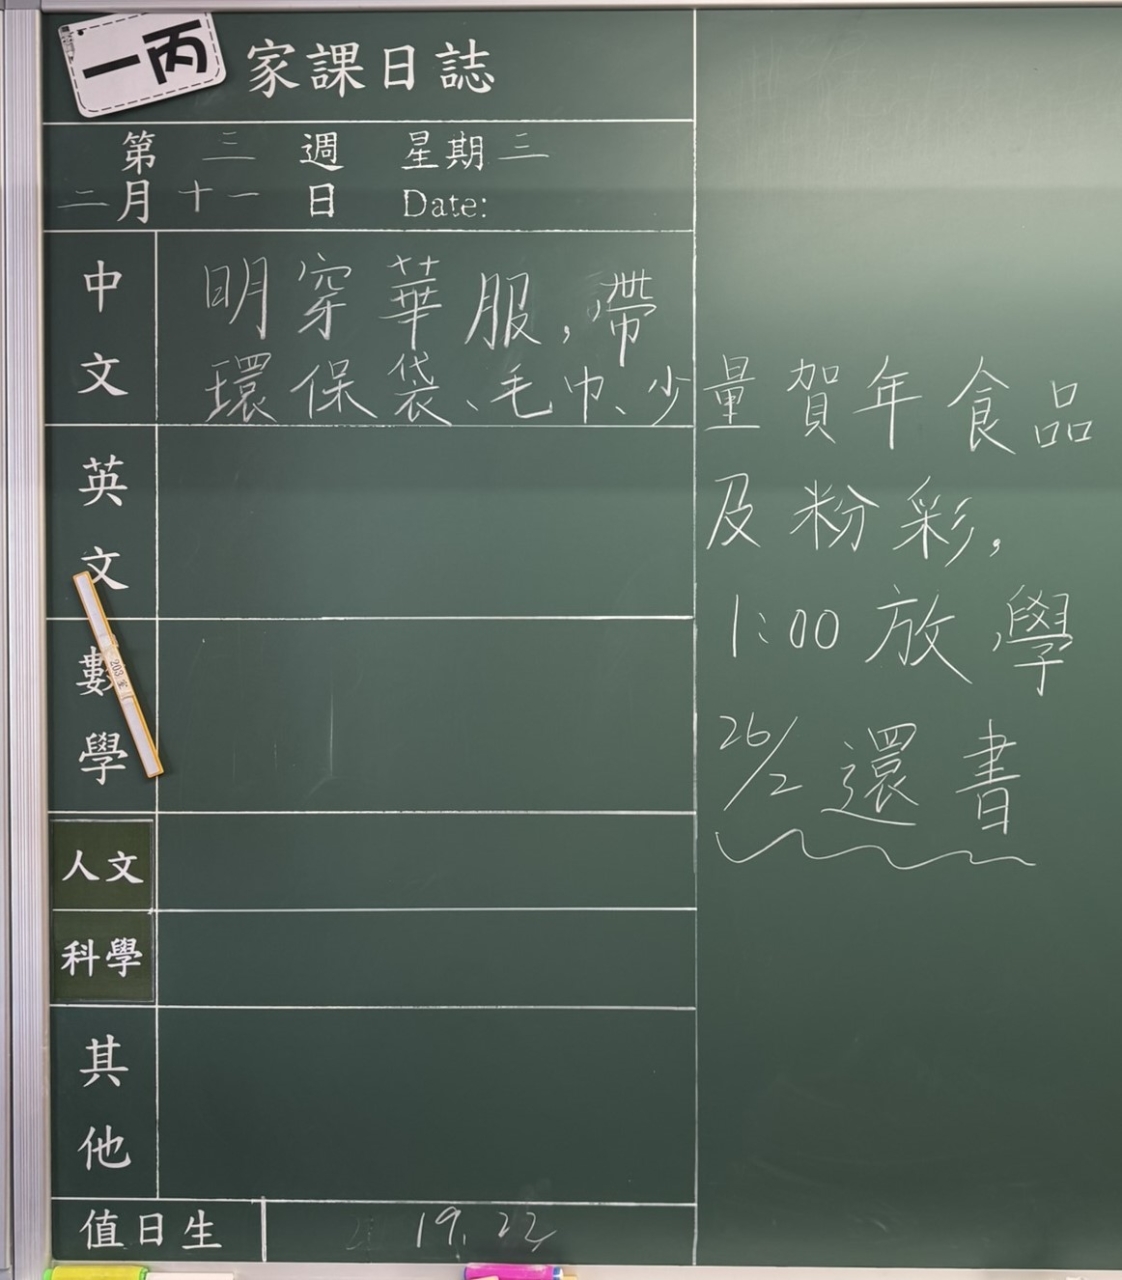 一丙 家課日誌
第 三 週 星期 三
二月 十一 日 Date:
中文
明穿華服，帶
環保袋、毛巾、少量賀年食品
及粉彩，
1:00 放學
26/2 還書
英文
數學
203室
人文
科學
其他
值日生 19, 22